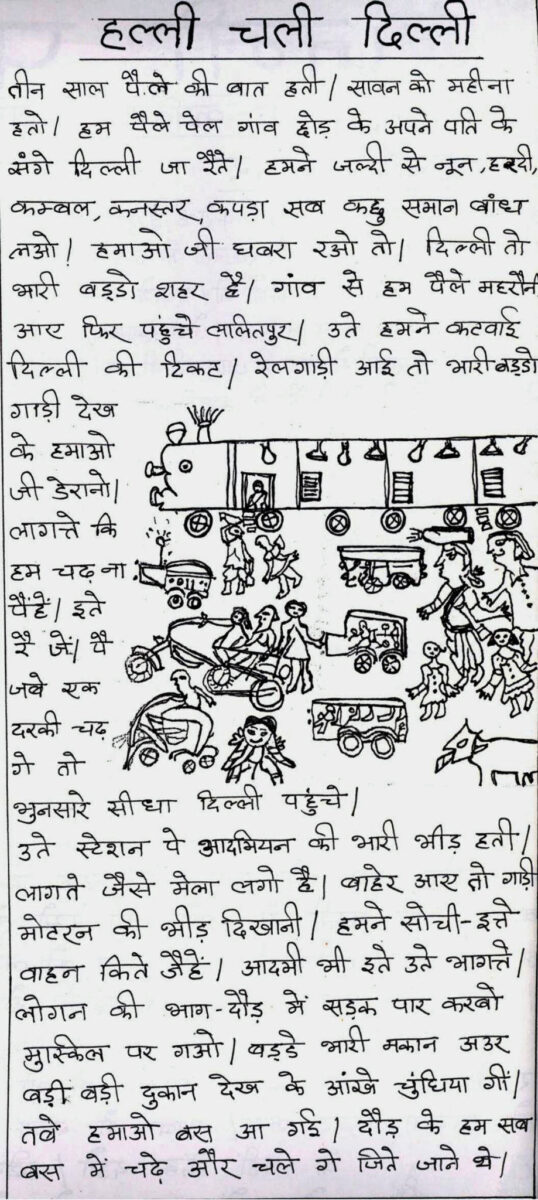 हल्ली चली दिल्ली
तीन साल पैले की बात हती। सावन को महीना
हतो। हम पैले पेल गांव छोड़ के अपने पति के
संगे दिल्ली जा रैते। हमने जल्दी से नून, हरदी,
कम्बल, कनस्तर, कपड़ा सब कछु समान बांध
लओ। हमाओ जी घबरा रओ तो। दिल्ली तो
भारी बड्डो शहर है। गांव से हम पैले महरौनी
आए फिर पहुंचे ललितपुर। उते हमने कटवाई
दिल्ली की टिकट। रेलगाड़ी आई तो भारी बड्डो
गाड़ी देख
के हमाओ
जी डेरानो।
लागत्ते कि
हम चढ़ ना
पैंहें। इते
रै जें। पै
जबे एक
दरकी चढ़
गे तो
भुनसारे सीधा दिल्ली पहुंचे।
उते स्टेशन पे आदमियन की भारी भीड़ हती।
लागते जैसे मेला लगो है। बाहेर आए तो गाड़ी
मोटरन की भीड़ दिखानी। हमने सोची-इत्ते
वाहन किते जैहें। आदमी भी इते उते भागत्ते।
लोगन की भाग-दौड़ में सड़क पार करबो
मुस्किल पर गओ। बड्डे भारी मकान अउर
बड़ी बड़ी दुकान देख के आंखे चुंधिया गीं।
तबे हमाओ बस आ गई। दौड़ के हम सब
बस में चढ़े और चले गे जिते जाने थे।